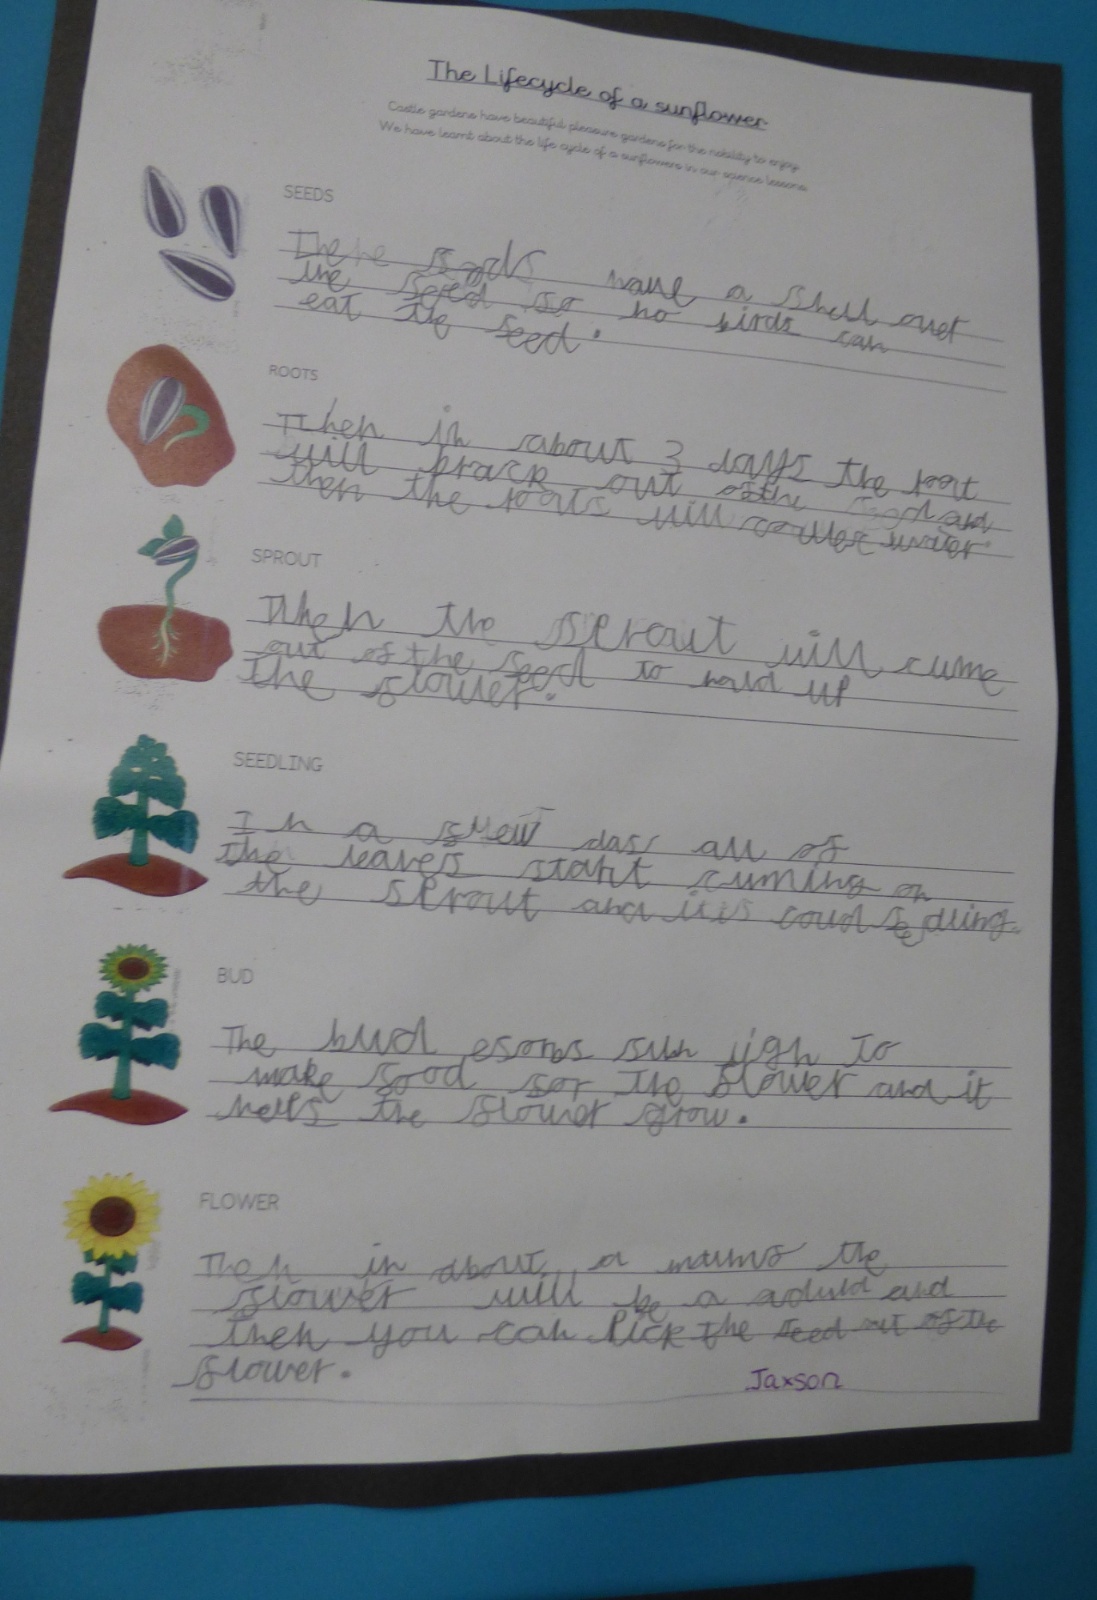 The Lifecycle of a sunflower
Castle gardens have beautiful pleasure gardens for the nobility to enjoy.
We have learnt about the life cycle of a sunflowers in our science lessons.
SEEDS
The seeds have a shell over
the seed so no birds can
eat the seed.
ROOTS
Then in about 3 days the root
will crack out of the seed and
then the roots will water.
SPROUT
Then the sprout will cume
out of the seed to hold up
the flower.
SEEDLING
In a few days all of
the leaves start cuming on
the sprout and it is
BUD
The bud esorbs sun ligh to
make food for the flower and it
helps the flower grow.
FLOWER
Then in about a the
flower will be a and
then you can pick the seed out of the
flower.
Jaxson